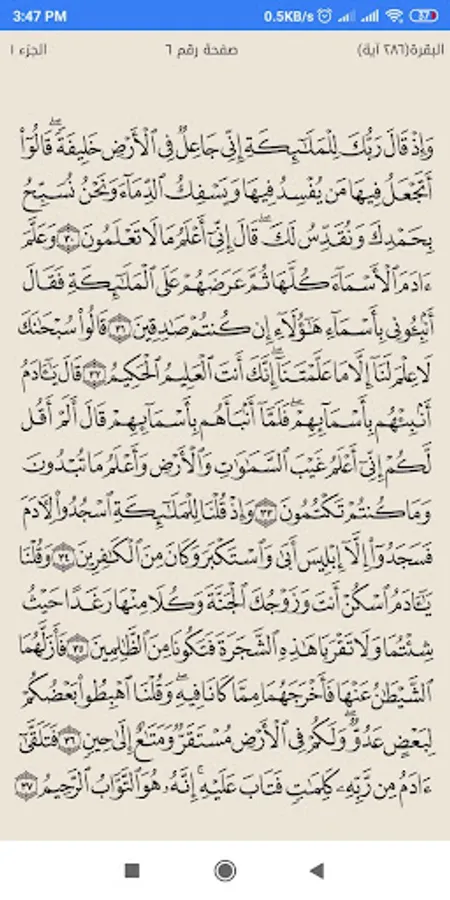 3:47 PM 0.5KB/s 37
البقرة(٢٨٦ آية) صفحة رقم ٦ الجزء ١
وَإِذْ قَالَ رَبُّكَ لِلْمَلَٰٓئِكَةِ إِنِّي جَاعِلٌ فِي ٱلْأَرْضِ خَلِيفَةًۖ قَالُوٓا۟
أَتَجْعَلُ فِيهَا مَن يُفْسِدُ فِيهَا وَيَسْفِكُ ٱلدِّمَآءَ وَنَحْنُ نُسَبِّحُ
بِحَمْدِكَ وَنُقَدِّسُ لَكَۖ قَالَ إِنِّيٓ أَعْلَمُ مَا لَا تَعْلَمُونَ ٣٠ وَعَلَّمَ
ءَادَمَ ٱلْأَسْمَآءَ كُلَّهَا ثُمَّ عَرَضَهُمْ عَلَى ٱلْمَلَٰٓئِكَةِ فَقَالَ
أَنۢبِـُٔونِي بِأَسْمَآءِ هَٰٓؤُلَآءِ إِن كُنتُمْ صَٰدِقِينَ ٣١ قَالُوا۟ سُبْحَٰنَكَ
لَا عِلْمَ لَنَآ إِلَّا مَا عَلَّمْتَنَآۖ إِنَّكَ أَنتَ ٱلْعَلِيمُ ٱلْحَكِيمُ ٣٢ قَالَ يَٰٓـَٔادَمُ
أَنۢبِئْهُم بِأَسْمَآئِهِمْۖ فَلَمَّآ أَنۢبَأَهُم بِأَسْمَآئِهِمْ قَالَ أَلَمْ أَقُل
لَّكُمْ إِنِّيٓ أَعْلَمُ غَيْبَ ٱلسَّمَٰوَٰتِ وَٱلْأَرْضِ وَأَعْلَمُ مَا تُبْدُونَ
وَمَا كُنتُمْ تَكْتُمُونَ ٣٣ وَإِذْ قُلْنَا لِلْمَلَٰٓئِكَةِ ٱسْجُدُوا۟ لِءَادَمَ
فَسَجَدُوٓا۟ إِلَّآ إِبْلِيسَ أَبَىٰ وَٱسْتَكْبَرَ وَكَانَ مِنَ ٱلْكَٰفِرِينَ ٣٤ وَقُلْنَا
يَٰٓـَٔادَمُ ٱسْكُنْ أَنتَ وَزَوْجُكَ ٱلْجَنَّةَ وَكُلَا مِنْهَا رَغَدًا حَيْثُ
شِئْتُمَا وَلَا تَقْرَبَا هَٰذِهِ ٱلشَّجَرَةَ فَتَكُونَا مِنَ ٱلظَّٰلِمِينَ ٣٥ فَأَزَلَّهُمَا
ٱلشَّيْطَٰنُ عَنْهَا فَأَخْرَجَهُمَا مِمَّا كَانَا فِيهِۖ وَقُلْنَا ٱهْبِطُوا۟ بَعْضُكُمْ
لِبَعْضٍ عَدُوٌّۖ وَلَكُمْ فِي ٱلْأَرْضِ مُسْتَقَرٌّ وَمَتَٰعٌ إِلَىٰ حِينٍ ٣٦ فَتَلَقَّىٰٓ
ءَادَمُ مِن رَّبِّهِۦ كَلِمَٰتٍ فَتَابَ عَلَيْهِۚ إِنَّهُۥ هُوَ ٱلتَّوَّابُ ٱلرَّحِيمُ ٣٧